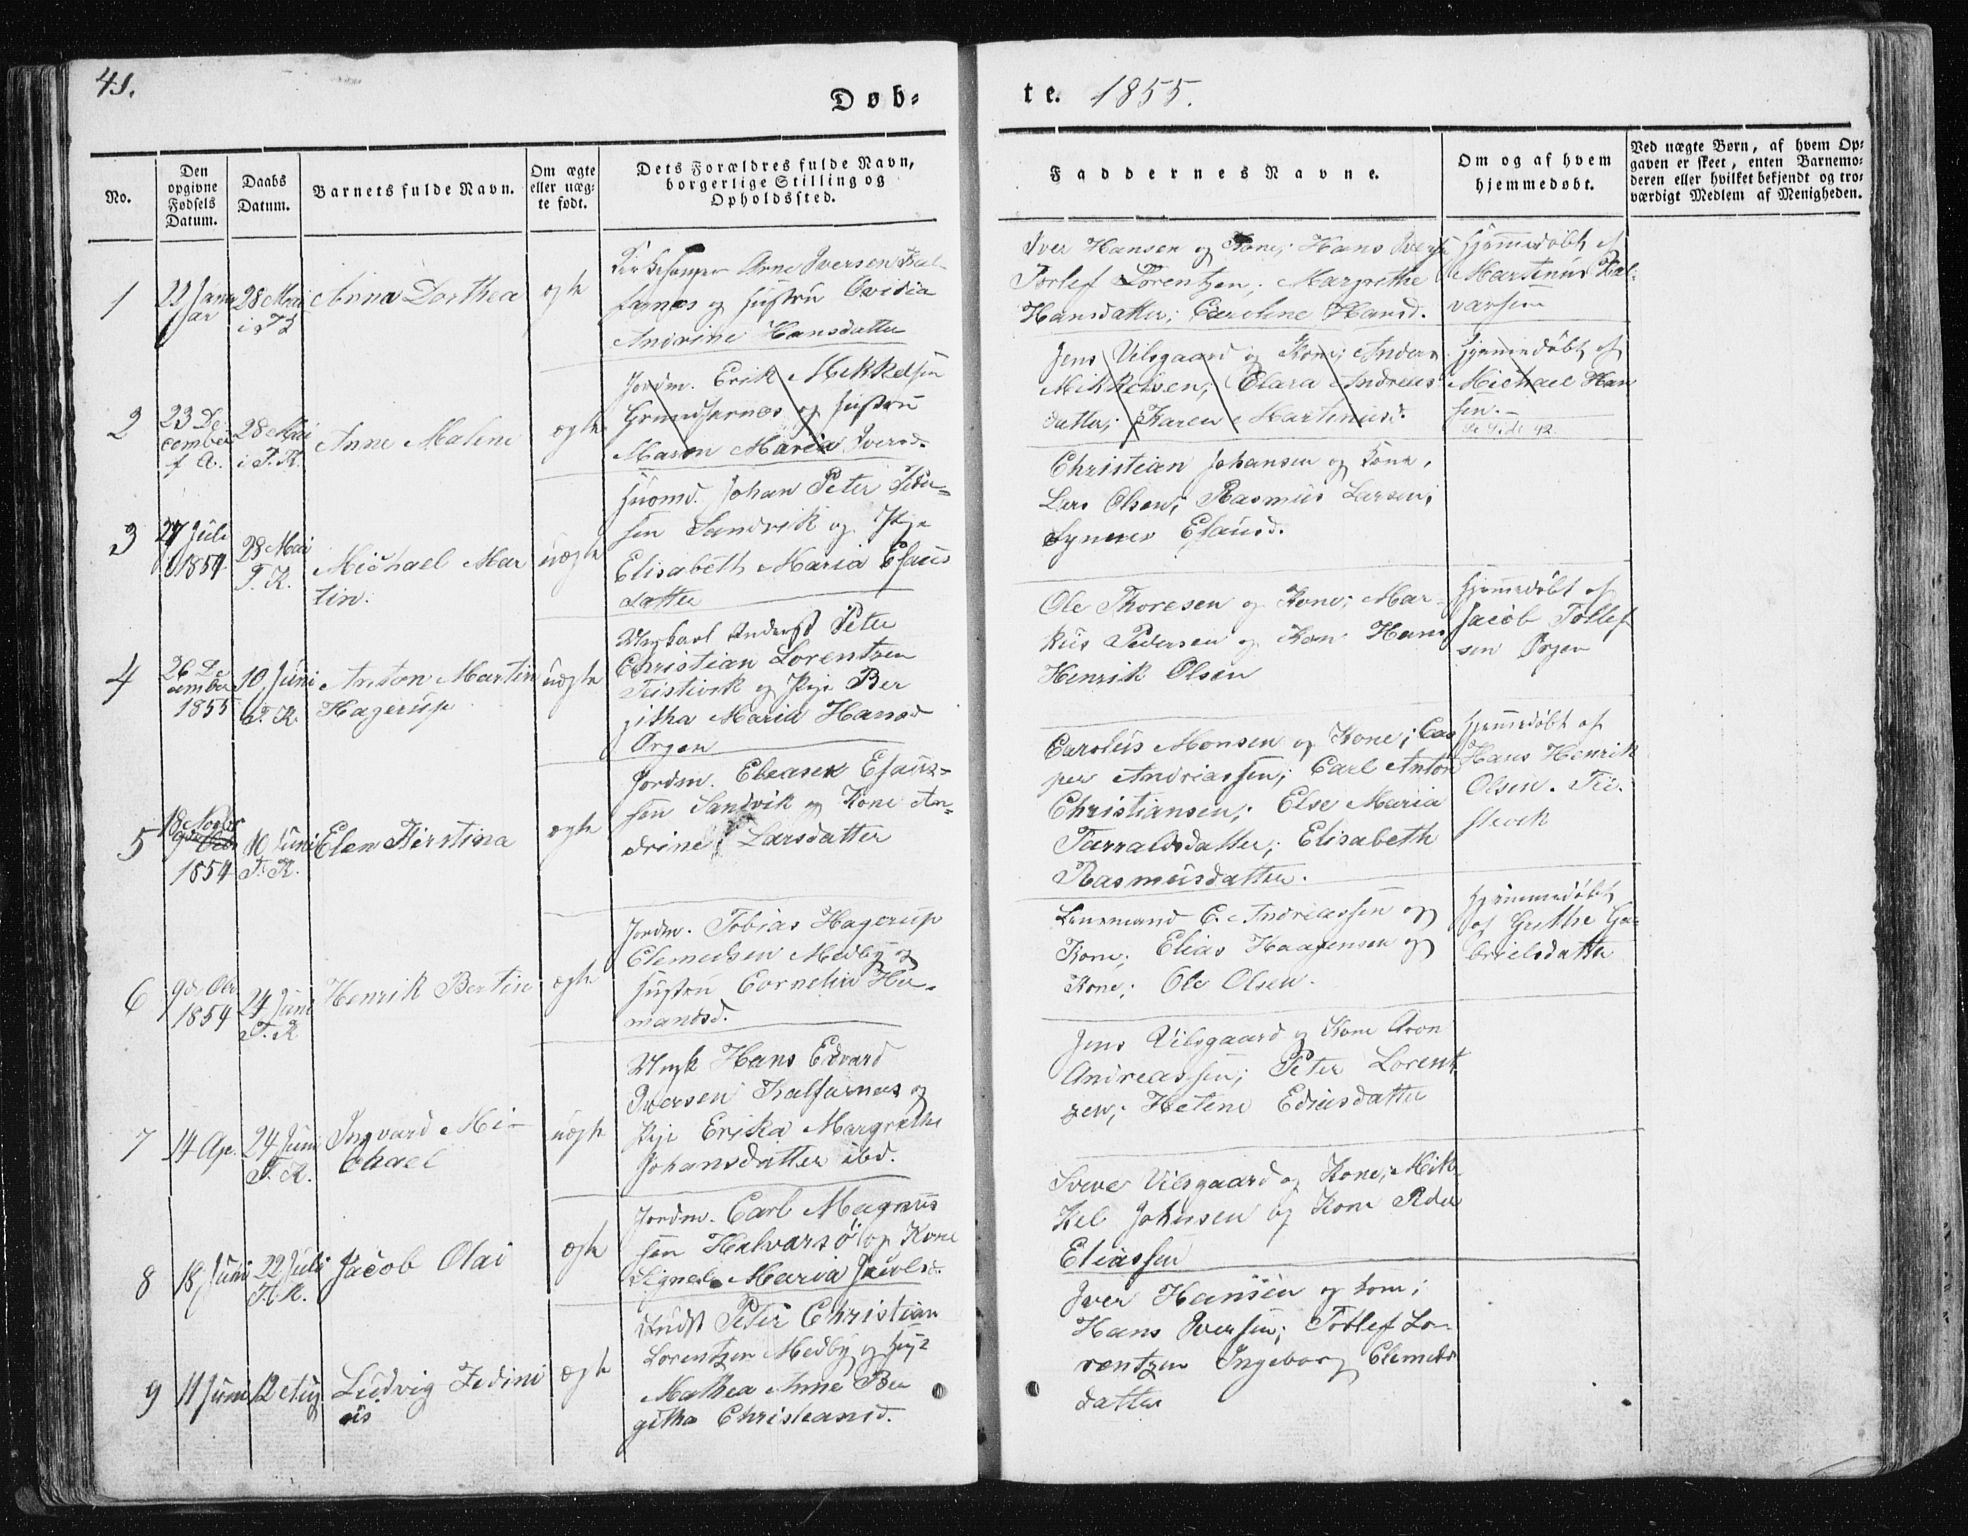 41.
Døb-
te. 1855.
No.
Den opgivne Fødsels Datum.
Daabs Datum.
Barnets fulde Navn.
Om ægte eller uæg-
te født.
Dets Forældres fulde Navn,
borgerlige Stilling og
Opholdssted.
Faddernes Navne.
Om og af hvem
hjemmedøbt.
Ved uægte Børn, af hvem Op-
gaven er skeet, enten Barnemo-
deren eller hvilket bekjendt og tro-
værdigt Medlem af Menigheden.
1
28 Mai
Anna Dorthea
ægte
Arne Iversen Kal-
farnes og Hustru Ovidia
Andrine Hansdatter
Iver Hansen og Kone; Hans Iversen
Torlef Lorentzen; Margrethe
Hansdatter; Caroline Hansd.
Hjemmedøbt af
Martinus Hal-
varsen
2
23 De
cember
f. A.
28 Mai
i T. K.
Anne Malene
ægte
Jordm. Erik Mikkelsen
og Hustru
Maren Maria Iversd.
Jens Vilsgaard og Kone; Anders
Mikkelsen; Clara Andreas
datter; Karen Martinusd.
Hjemmedøbt af
Michael Han
sen.
3
27 Juli
1854
28 Mai
T. K.
Michael Mar
tin.
uægte
Huusmd. Johan Peter Peder-
sen Sandvik og Pige
Elisabeth Maria Esaus
datter
Christian Johansen og Kone,
Lars Olsen; Rasmus Larsen;
Esausd.
4
26 De
cember
1855
10 Juni
T. K.
Anton Martin
Hagerup
uægte
Ungkarl Peter
Christian Lorentzen
Teistevik og Pige Ber
githa Maria Hansd
Ørgen
Ole Thoresen og Kone; Mar-
kus Pedersen og Kone Hans
Henrik Olsen
Hjemmedøbt af
Jacob Tollef
sen Ørgen
5
1854
10 Juni
T. K.
Elen Kirstina
ægte
Jordm. Eleaser Esaus-
sen Sandvik og Kone An-
drine Larsdatter
Carolus Monsen og Kone; Cas
per Andriassen; Carl Anton
Christiansen; Else Maria
Tarraldsdatter; Elisabeth
Rasmusdatter.
Hjemmedøbt af
Hans Henrik
Olsen. Tei-
stevik
6
1854
24 Juni
T. K.
Henrik Bertin
ægte
Jordm. Tobias Hagerup
Clemedsen Medby og
Hustru Cornelia Her-
mandsd.
Lensmand E. Andreassen og
Kone; Elias Haagensen og
Kone; Ole Olsen.
Hjemmedøbt
af Grethe Ga-
brielsdatter
7
14 Ap.
24 Juni
T. K.
Ingvard Mi-
chael
uægte
Ungk Hans Edvard
Iversen Kalfarnes og
Pige Erika Margrethe
Johansdatter ibd.
Jens Vilsgaard og Kone Aron
Andreassen; Peter Lorent
zen; Helene Edisdatter
8
18 Juni
22 Juli
T. K.
Jacob Olai
ægte
Jordm. Carl Magnus
sen Halvarsö og Kone
Maria Jacobsd.
Vilsgaard og Kone; Mik-
kel Johnsen og Kone Peder
Eliassen
9
11 Juni
12 Aug
Ludvig Zedini
us
ægte
Peter Christian
Lorentzen Medby og
Mathea Anne Ber
githa Christiansd.
Iver Hansen og Kone;
Hans Iversen; Tollef Lo-
rentzen Ingeborg Clemets
datter